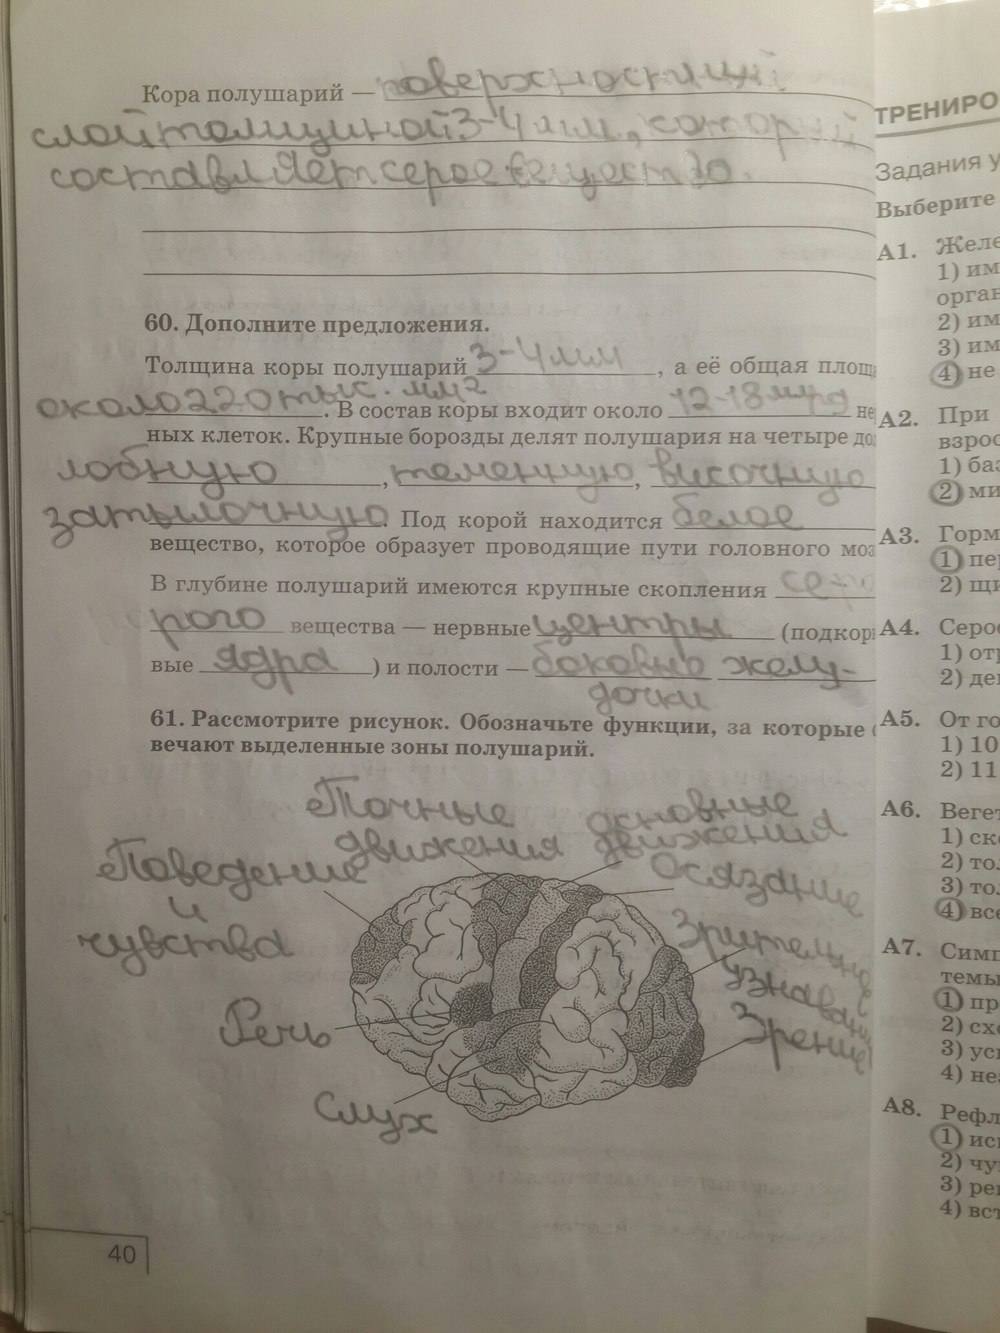 Кора полушарий — поверхностный
слой толщиной 3-4 мм, который
составляет серое вещество.
60. Дополните предложения.
Толщина коры полушарий 3-4 мм, а её общая площ
около 220 тыс. мм2. В состав коры входит около 12-18 млрд не
ных клеток. Крупные борозды делят полушария на четыре до
лобную, теменную, височную
затылочную. Под корой находится белое
вещество, которое образует проводящие пути головного моз
В глубине полушарий имеются крупные скопления се
рого вещества — нервные центры (подкор
вые ядра) и полости — боковые желу-
дочки
61. Рассмотрите рисунок. Обозначьте функции, за которые
вечают выделенные зоны полушарий.
Точные
движения
основные
движения
Поведение
и
чувства
Осязание
Зрительное
узнавание
Речь
Зрение
Слух
40
ТРЕНИРО
Задания у
Выберите
А1. Желе
1) им
орган
2) им
3) им
4) не
А2. При
взрос
1) баз
2) ми
А3. Горм
1) пе
2) щи
А4. Серо
1) от
2) де
А5. От го
1) 10
2) 11
А6. Вегет
1) ск
2) то
3) то
4) все
А7. Симп
темы
1) пр
2) сх
3) ус
4) не
А8. Рефл
1) ис
2) чу
3) ре
4) вст